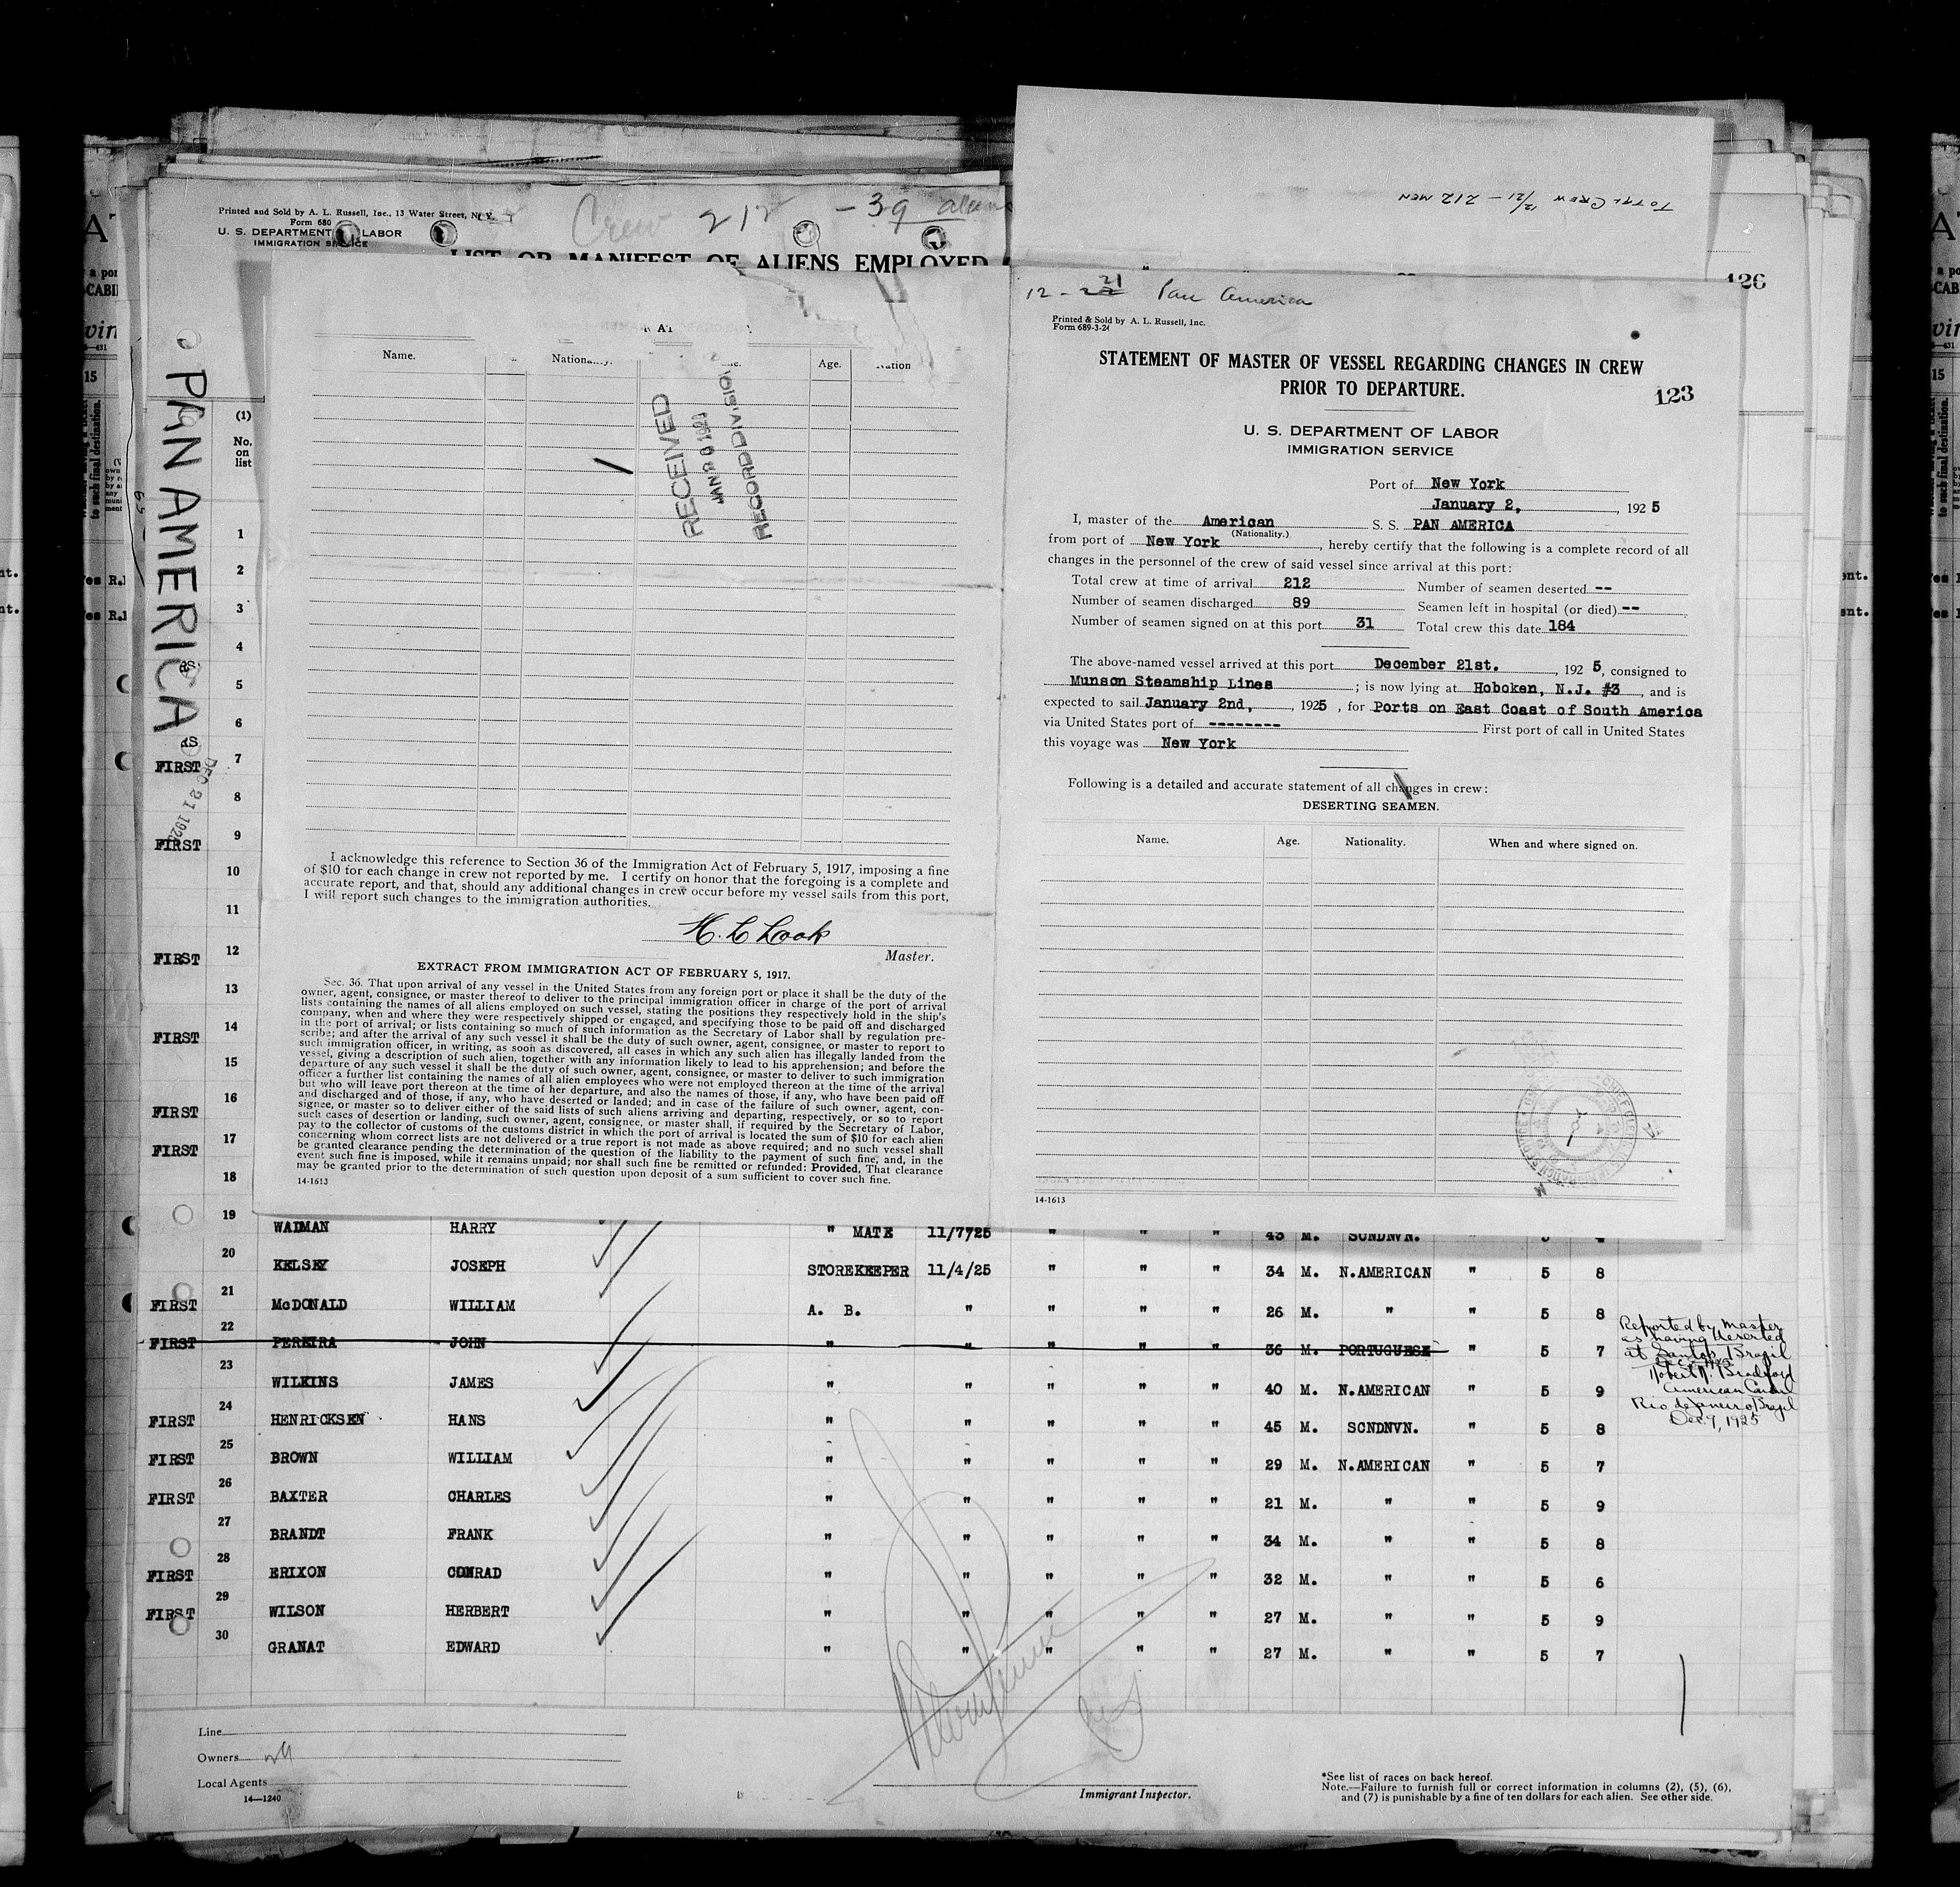 TOTAL CREW 12/21 - 212 MEN
Printed and Sold by A. L. Russell, Inc., 13 Water Street, N. Y.
Form 680
U. S. DEPARTMENT OF LABOR
IMMIGRATION SERVICE
Crew 212 - 39 aliens
LIST OR MANIFEST OF ALIENS EMPLOYED
126
PAN AMERICA
DEC 21 192
(1)
No.
on
list
Name. Nationality. Age.
RECEIVED
RECORD DIVISION
I acknowledge this reference to Section 36 of the Immigration Act of February 5, 1917, imposing a fine
of $10 for each change in crew not reported by me. I certify on honor that the foregoing is a complete and
accurate report, and that, should any additional changes in crew occur before my vessel sails from this port,
I will report such changes to the immigration authorities.
H. L Look
Master.
EXTRACT FROM IMMIGRATION ACT OF FEBRUARY 5, 1917.
Sec. 36. That upon arrival of any vessel in the United States from any foreign port or place it shall be the duty of the
owner, agent, consignee, or master thereof to deliver to the principal immigration officer in charge of the port of arrival
lists containing the names of all aliens employed on such vessel, stating the positions they respectively hold in the ship's
company, when and where they were respectively shipped or engaged, and specifying those to be paid off and discharged
in the port of arrival; or lists containing so much of such information as the Secretary of Labor shall by regulation pre-
scribe; and after the arrival of any such vessel it shall be the duty of such owner, agent, consignee, or master to report to
such immigration officer, in writing, as soon as discovered, all cases in which any such alien has illegally landed from the
vessel, giving a description of such alien, together with any information likely to lead to his apprehension; and before the
departure of any such vessel it shall be the duty of such owner, agent, consignee, or master to deliver to such immigration
officer a further list containing the names of all alien employees who were not employed thereon at the time of the arrival
but who will leave port thereon at the time of her departure, and also the names of those, if any, who have been paid off
and discharged and of those, if any, who have deserted or landed; and in case of the failure of such owner, agent, con-
signee, or master so to deliver either of the said lists of such aliens arriving and departing, respectively, or so to report
such cases of desertion or landing, such owner, agent, consignee, or master shall, if required by the Secretary of Labor,
pay to the collector of customs of the customs district in which the port of arrival is located the sum of $10 for each alien
concerning whom correct lists are not delivered or a true report is not made as above required; and no such vessel shall
be granted clearance pending the determination of the question of the liability to the payment of such fine, and, in the
event such fine is imposed, while it remains unpaid; nor shall such fine be remitted or refunded: Provided, That clearance
may be granted prior to the determination of such question upon deposit of a sum sufficient to cover such fine.
14-1613
12-21 Pan America
Printed & Sold by A. L. Russell, Inc.
Form 689-3-24
STATEMENT OF MASTER OF VESSEL REGARDING CHANGES IN CREW
PRIOR TO DEPARTURE.
123
U. S. DEPARTMENT OF LABOR
IMMIGRATION SERVICE
Port of New York
January 2, , 192 5
I, master of the American S. S. PAN AMERICA
(Nationality.)
from port of New York , hereby certify that the following is a complete record of all
changes in the personnel of the crew of said vessel since arrival at this port:
Total crew at time of arrival 212 Number of seamen deserted --
Number of seamen discharged 89 Seamen left in hospital (or died) --
Number of seamen signed on at this port 31 Total crew this date 184
The above-named vessel arrived at this port December 21st. , 192 5, consigned to
Munson Steamship Lines ; is now lying at Hoboken, N.J. #3 , and is
expected to sail January 2nd, , 1925 , for Ports on East Coast of South America
via United States port of -------- First port of call in United States
this voyage was New York
Following is a detailed and accurate statement of all changes in crew:
DESERTING SEAMEN.
Name. Age. Nationality. When and where signed on.
14-1613
1
2
3
4
5
6
FIRST 7
8
FIRST 9
10
11
FIRST 12
13
FIRST 14
15
FIRST 16
FIRST 17
18
19 WAIMAN HARRY " MATE 11/7/25 " " " 43 M. SCNDNVN.
20 KELSEY JOSEPH STOREKEEPER 11/4/25 " " " 34 M. N.AMERICAN " 5 8
FIRST 21 McDONALD WILLIAM A. B. " " " " 26 M. " " 5 8
FIRST 22 PEREIRA JOHN " " " " " 36 M. PORTUGUESE " 5 7
23 WILKINS JAMES " " " " " 40 M. N.AMERICAN " 5 9
FIRST 24 HENRICKSEN HANS " " " " " 45 M. SCNDNVN. " 5 8
FIRST 25 BROWN WILLIAM " " " " " 29 M. N.AMERICAN " 5 7
FIRST 26 BAXTER CHARLES " " " " " 21 M. " " 5 9
27 BRANDT FRANK " " " " " 34 M. " " 5 8
FIRST 28 ERIXON CONRAD " " " " " 32 M. " " 5 6
FIRST 29 WILSON HERBERT " " " " " 27 M. " " 5 9
30 GRANAT EDWARD " " " " " 27 M. " " 5 7
Reported by master
as having deserted
at Santos Brazil
Robert R. Bradford
American Consul
Rio de Janeiro Brazil
Dec 9, 1925
Line
Owners
Local Agents
14—1240
Immigrant Inspector.
*See list of races on back hereof.
Note.—Failure to furnish full or correct information in columns (2), (5), (6),
and (7) is punishable by a fine of ten dollars for each alien. See other side.